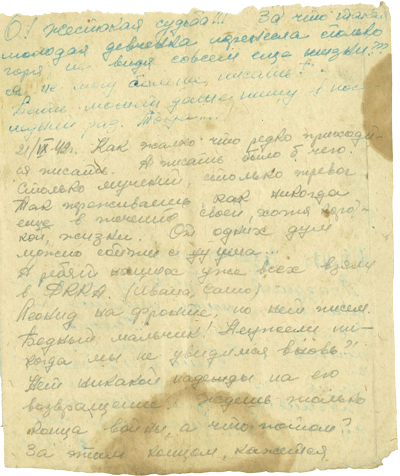 О! Жестокая судьба!!! За что такая
молодая девчёнка перенесла столько
горя не видя совсем еще жизни???
не могу больше писать!
пишу
21/IX-42г. Как жалко что редко приходит-
ся писать. А писать было б чего.
Столько мучений столько тревог
Так переживать как никогда
еще в течение своей, хотя корот-
кой, жизни. От одних дум
можно сойти с ума...
А ребят наших уже всех взяли
в ФККА. (Ивана, Сашо)
Леонид на фронте, но нет писем.
Бедный мальчик! Неужели ни-
когда мы не увидимся вновь?!
Нет никакой надежды на его
возвращение. Ждешь только
конца войны, а что потом?
За этим концом, кажется,